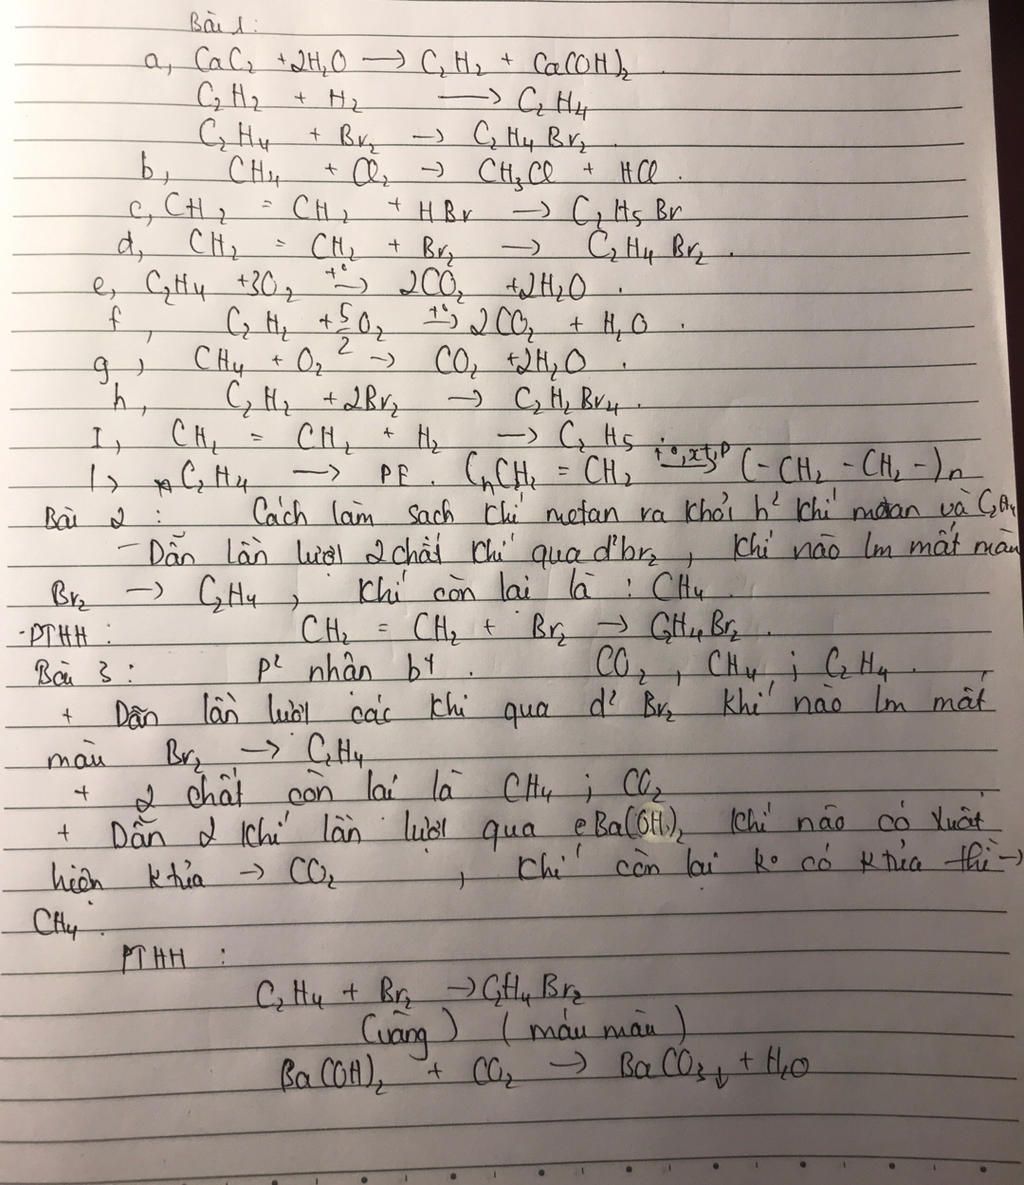 Bài 1:
a, CaC2 + 2H2O → C2H2 + Ca(OH)2
C2H2 + H2 → C2H4
C2H4 + Br2 → C2H4Br2.
b, CH4 + Cl2 → CH3Cl + HCl.
c, CH2 = CH2 + HBr → C2H5Br
d, CH2 = CH2 + Br2 → C2H4Br2.
e, C2H4 + 3O2 t° → 2CO2 + 2H2O.
f, C2H2 + 5/2 O2 t° → 2CO2 + H2O.
g, CH4 + O2 → CO2 + 2H2O.
h, C2H2 + 2Br2 → C2H2Br4.
I, CH2 = CH2 + H2 → C2H5
l, C2H4 → PE. CnCH2 = CH2 t°, xt, P → (-CH2 - CH2-)n
Bài 2: Cách làm sạch khí metan ra khỏi h² khí metan và C2H4
- Dẫn lần lượt 2 chất khí qua d²br2, khí nào lm mất màu
Br2 → C2H4, khí còn lại là: CH4.
- PTHH: CH2 = CH2 + Br2 → C2H4Br2.
Bài 3: P² nhận b¹. CO2, CH4; C2H4.
+ Dẫn lần lượt các khí qua d² Br2 khí nào lm mất
màu Br2 → C2H4
+ 2 chất còn lại là CH4; CO2
+ Dẫn 2 khí lần lượt qua Ba(OH)2 khí nào có xuất
hiện ktủa → CO2, khí còn lại k° có ktủa thì →
CH4.
PTHH:
C2H4 + Br2 → C2H4Br2
(vàng) (máu màu)
Ba(OH)2 + CO2 → BaCO3↓ + H2O